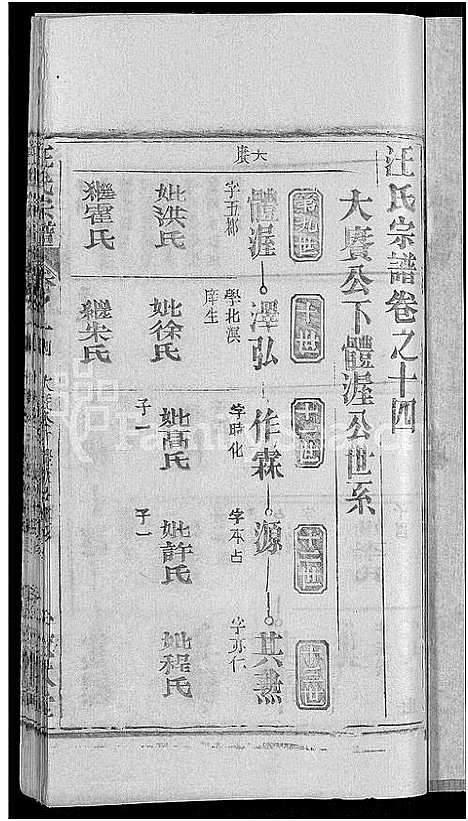 汪氏宗譜卷之十四
大賡公下體渥公世系
第九世
十世
十一世
十二世
十三世
大賡
體渥
澤弘
作霖
源
其燕
字玉都
學北溟
庠生
字時化
字本占
字亦仁
妣洪氏
妣徐氏
妣高氏
子一
妣許氏
子一
妣程氏
繼霍氏
繼朱氏